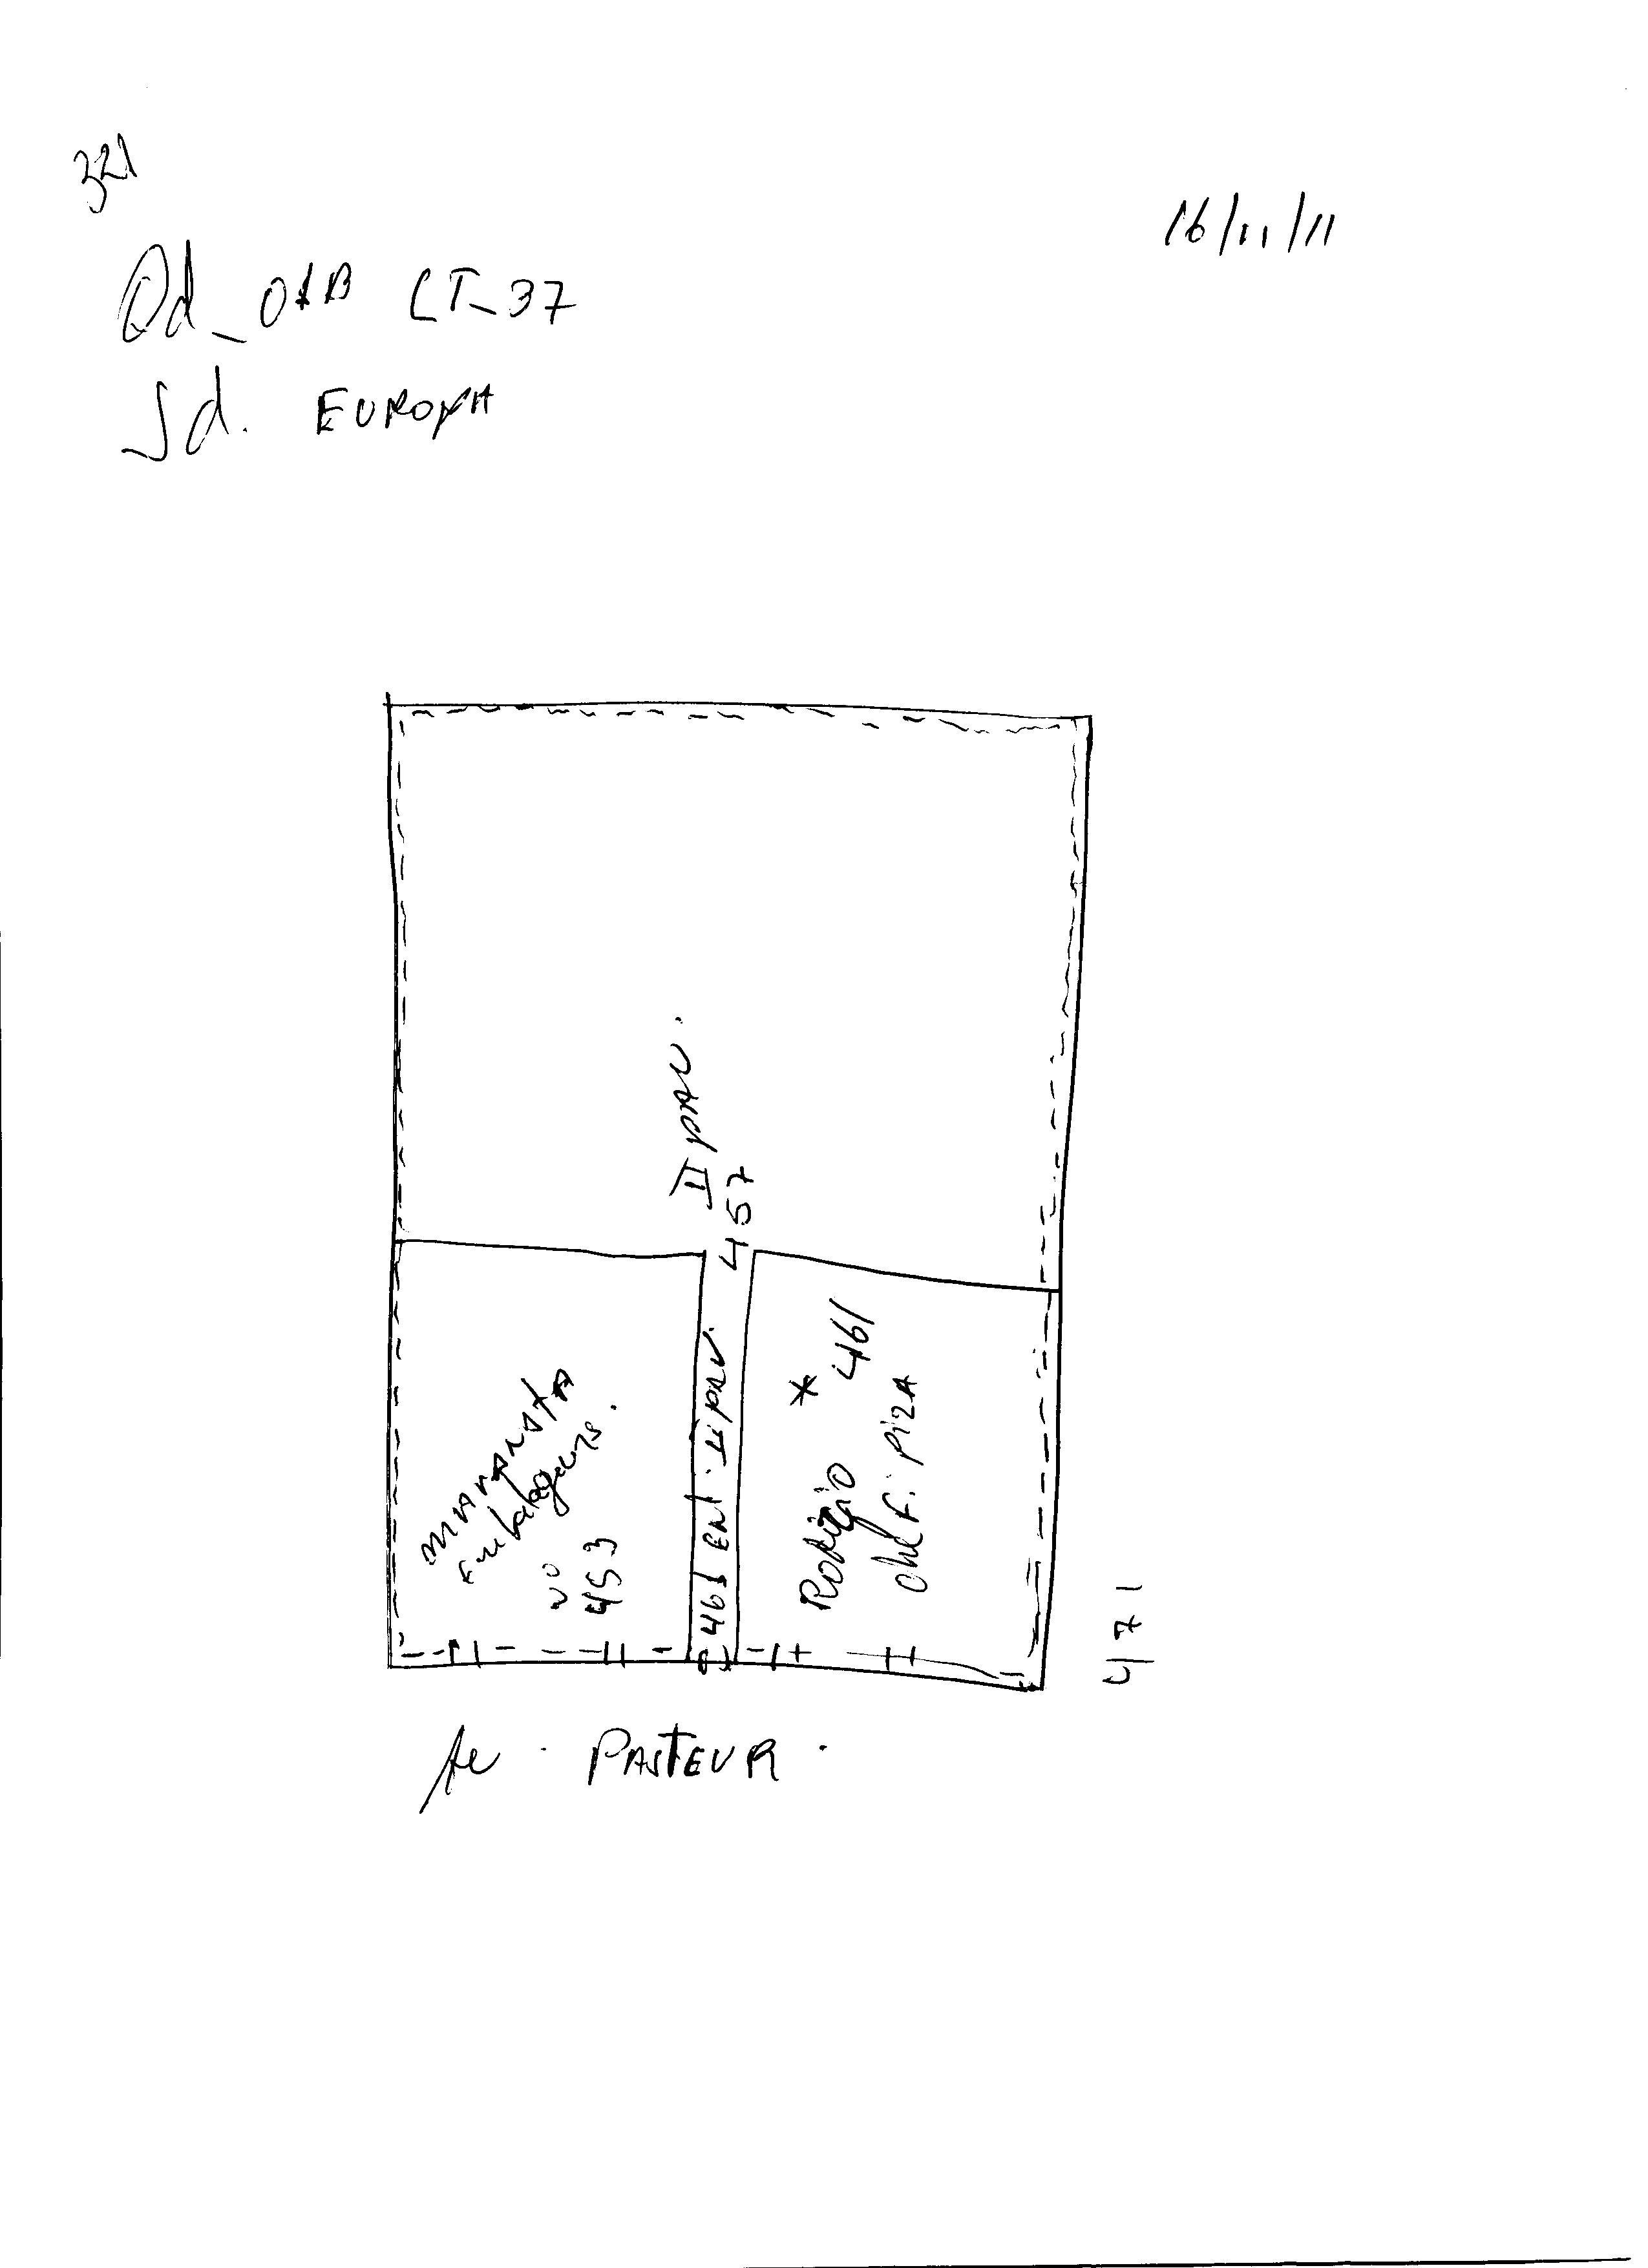 321
16/11/11
Qd_01B LT_37
Jd. EUROPA
II pav.
457
461 Ent. II pav.
* 461
Rodizio
chef: piza
embalagens.
nº
453
471
Av. PASTEUR.